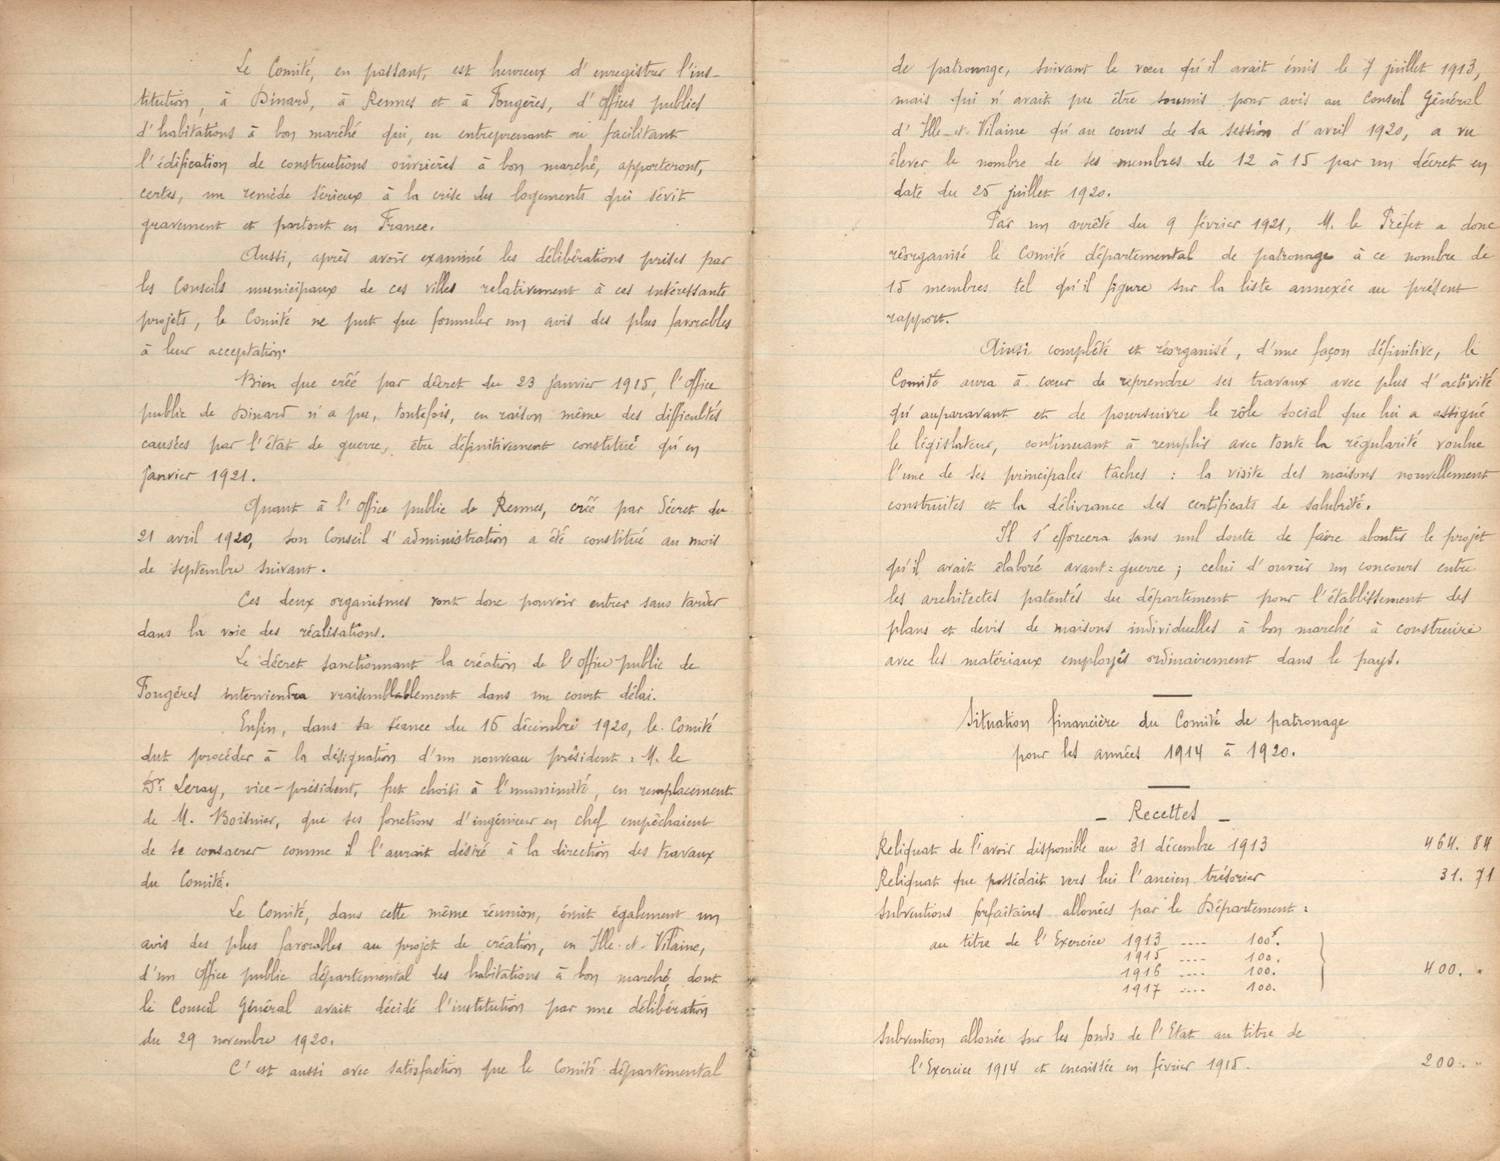 Le Comité, en passant, est heureux d'enregistrer l'ins-
titution, à Dinard, à Rennes et à Fougères, d'offices publics
d'habitations à bon marché qui, en entreprenant ou facilitant
l'édification de constructions ouvrières à bon marché, apporteront,
certes, un remède sérieux à la crise des logements qui sévit
gravement et partout en France.
Aussi, après avoir examiné les délibérations prises par
les Conseils municipaux de ces villes relativement à ces intéressants
projets, le Comité ne put que formuler un avis des plus favorables
à leur acceptation.
Bien que créé par décret du 23 janvier 1915, l'office
public de Dinard n'a pu, toutefois, en raison même des difficultés
causées par l'état de guerre, être définitivement constitué qu'en
janvier 1921.
Quant à l'office public de Rennes, créé par décret du
21 avril 1920, son Conseil d'administration a été constitué au mois
de septembre suivant.
Ces deux organismes vont donc pouvoir entrer sans tarder
dans la voie des réalisations.
Le décret sanctionnant la création de l'office public de
Fougères interviendra vraisemblablement dans un court délai.
Enfin, dans sa séance du 16 décembre 1920, le Comité
dut procéder à la désignation d'un nouveau président : M. le
Dr Leray, vice-président, fut choisi à l'unanimité, en remplacement
de M. Boisnier, que ses fonctions d'ingénieur en chef empêchaient
de se consacrer comme il l'aurait désiré à la direction des travaux
du Comité.
Le Comité, dans cette même réunion, émit également un
avis des plus favorables au projet de création, en Ille-et-Vilaine,
d'un office public départemental des habitations à bon marché dont
le Conseil Général avait décidé l'institution par une délibération
du 29 novembre 1920.
C'est aussi avec satisfaction que le Comité départemental
de patronage, suivant le vœu qu'il avait émis le 7 juillet 1913,
mais qui n'avait pu être soumis pour avis au Conseil Général
d'Ille-et-Vilaine qu'au cours de sa session d'avril 1920, a vu
élever le nombre de ses membres de 12 à 15 par un décret en
date du 25 juillet 1920.
Par un arrêté du 9 février 1921, M. le Préfet a donc
réorganisé le Comité départemental de patronage à ce nombre de
15 membres tel qu'il figure sur la liste annexée au présent
rapport.
Ainsi complété et réorganisé, d'une façon définitive, le
Comité aura à cœur de reprendre ses travaux avec plus d'activité
qu'auparavant et de poursuivre le rôle social que lui a assigné
le législateur, continuant à remplir avec toute la régularité voulue
l'une de ses principales tâches : la visite des maisons nouvellement
construites et la délivrance des certificats de salubrité.
Il s'efforcera sans nul doute de faire aboutir le projet
qu'il avait élaboré avant-guerre ; celui d'ouvrir un concours entre
les architectes patentés du département pour l'établissement des
plans et devis de maisons individuelles à bon marché à construire
avec les matériaux employés ordinairement dans le pays.
Situation financière du Comité de patronage
pour les années 1914 à 1920.
- Recettes -
Reliquat de l'avoir disponible au 31 décembre 1913 464. 84
Reliquat que possédait vers lui l'ancien trésorier 31. 71
Subventions forfaitaires allouées par le Département :
au titre de l'Exercice 1913 .... 100f.
1915 .... 100.
1916 .... 100. 400. "
1917 .... 100.
Subvention allouée sur les fonds de l'Etat au titre de
l'Exercice 1914 et encaissée en février 1915. 200. "